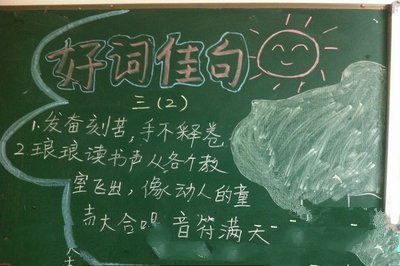 好词佳句
三(2)
1.发奋刻苦,手不释卷
2.琅琅读书声从各个教
室飞出,像动人的童
声大合唱 音符满天